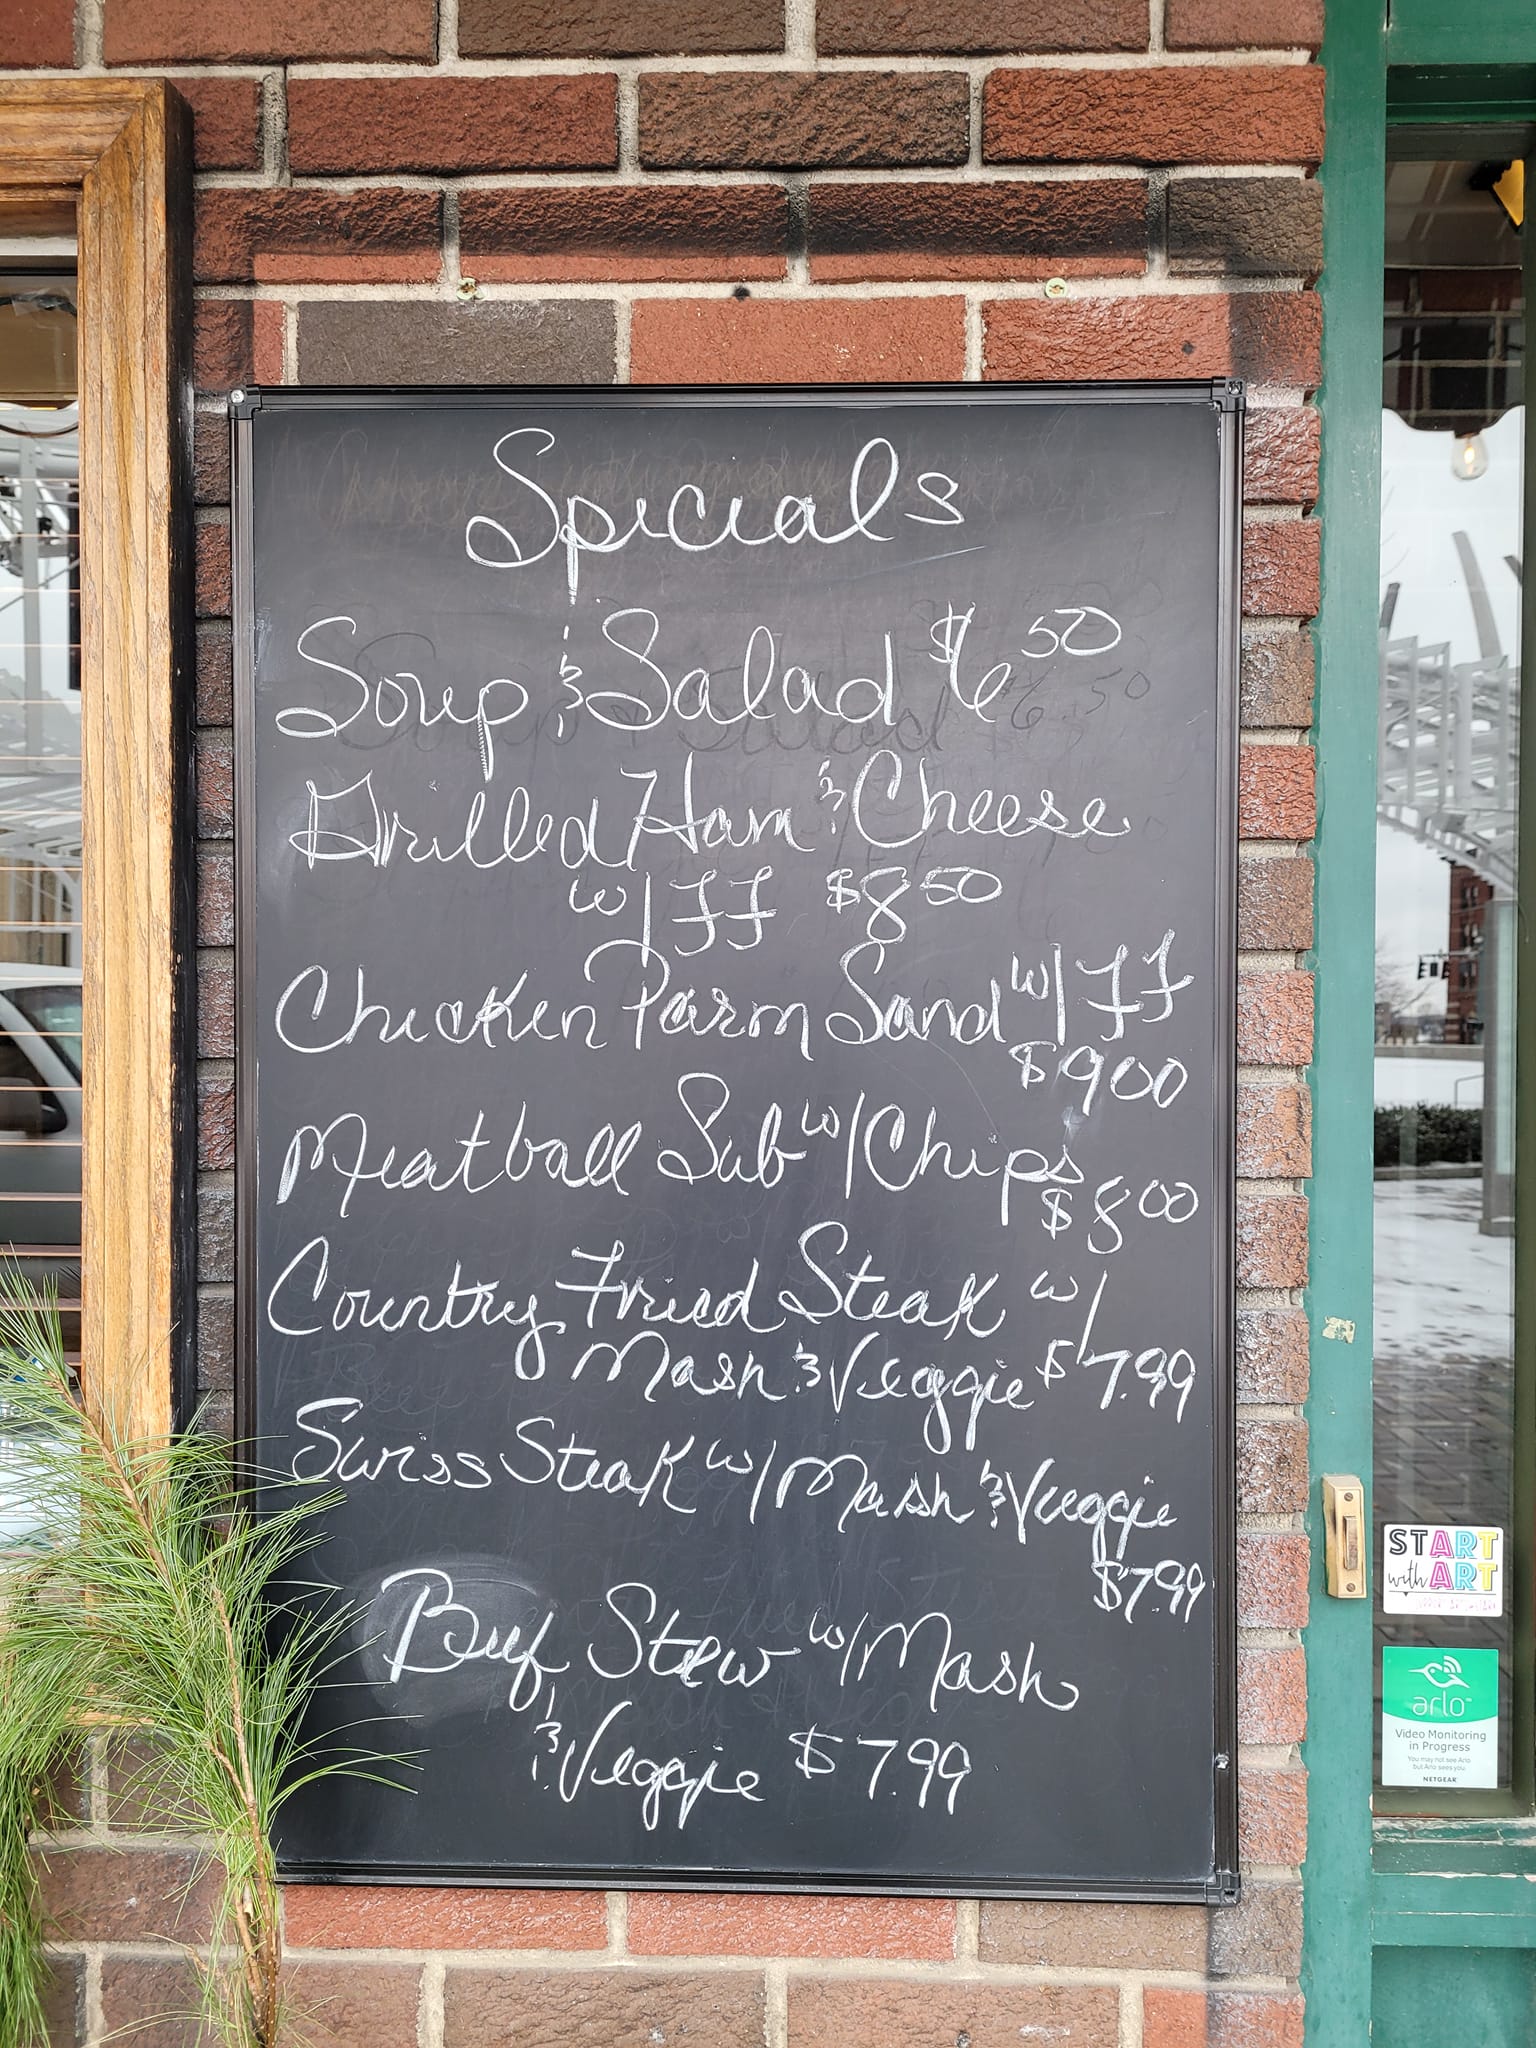 Specials
Soup & Salad $6 50
Grilled Ham & Cheese
w/ FF $8 50
Chicken Parm Sand w/ FF
$9 00
Meatball Sub w/ Chips
$8 00
Country Fried Steak w/
Mash & Veggie $7.99
Swiss Steak w/ Mash & Veggie
$7.99
Beef Stew w/ Mash
& Veggie $7.99
START
with ART
arlo
Video Monitoring
in Progress
You may not see Arlo
but Arlo sees you.
NETGEAR